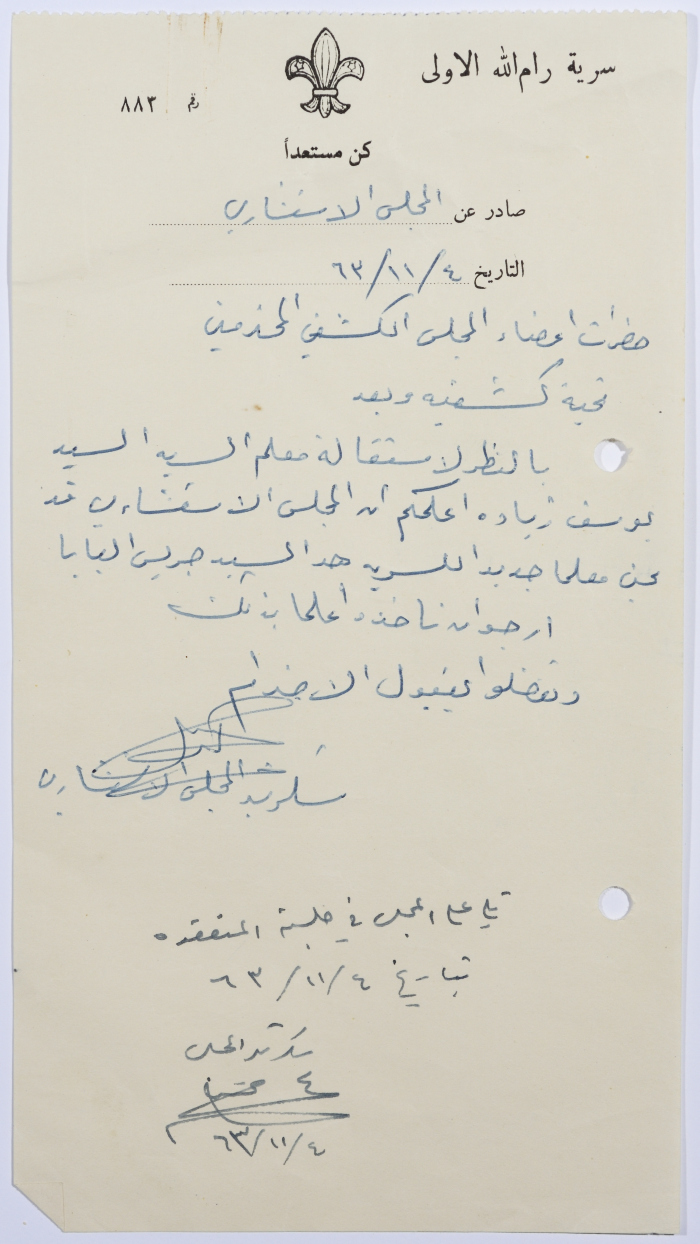 سرية رام الله الاولى
رقم ٨٨٣
كن مستعداً
صادر عن المجلس الاستشاري
التاريخ ٦٣/١١/٤
حضرات اعضاء المجلس الكشفي المحترمين
تحية كشفيه وبعد
بالنظر لاستقالة معلم السريه السيد
يوسف زياده اعلمكم ان المجلس الاستشاري قد
عين معلما جديدا للسريه هو السيد جريس البابا
ارجو ان تاخذوا علما بذلك
وتفضلوا بقبول الاحترام
سكرتير المجلس الاستشاري
تلي على المجلس في جلسته المنعقده
بتاريخ ٦٣/١١/٤
سكرتير المجلس
٦٣/١١/٤